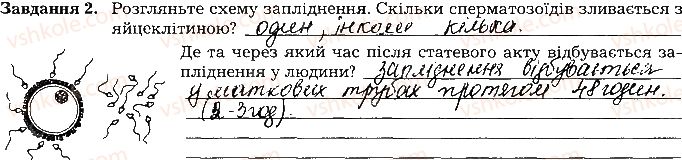 Завдання 2. Розгляньте схему запліднення. Скільки сперматозоїдів зливається з
яйцеклітиною? один, інколи кілька.
Де та через який час після статевого акту відбувається за-
пліднення у людини? запліднення відбувається
у маткових трубах протягом 48 годин.
(2-3 год).